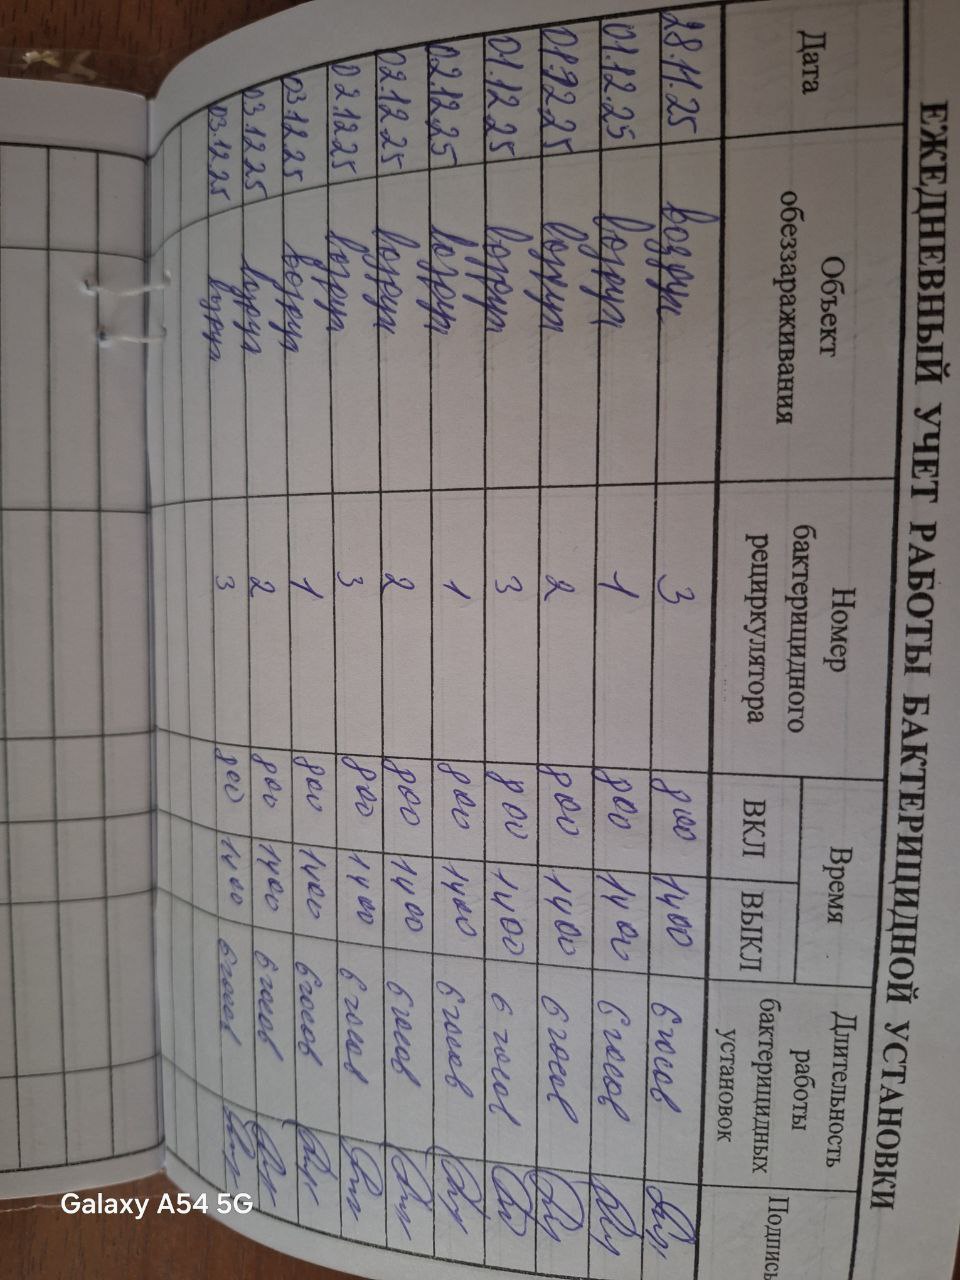 ЕЖЕДНЕВНЫЙ УЧЕТ РАБОТЫ БАКТЕРИЦИДНОЙ УСТАНОВКИ
Дата
Объект
обеззараживания
Номер
бактерицидного
рециркулятора
Время
ВКЛ
ВЫКЛ
Длительность
работы
бактерицидных
установок
Подпись
28.11.25 воздух 3 800 1400 6 часов
01.12.25 воздух 1 800 1400 6 часов
01.12.25 воздух 2 800 1400 6 часов
01.12.25 воздух 3 800 1400 6 часов
02.12.25 воздух 1 800 1400 6 часов
02.12.25 воздух 2 800 1400 6 часов
02.12.25 воздух 3 800 1400 6 часов
03.12.25 воздух 1 800 1400 6 часов
03.12.25 воздух 2 800 1400 6 часов
03.12.25 воздух 3 800 1400 6 часов
Galaxy A54 5G